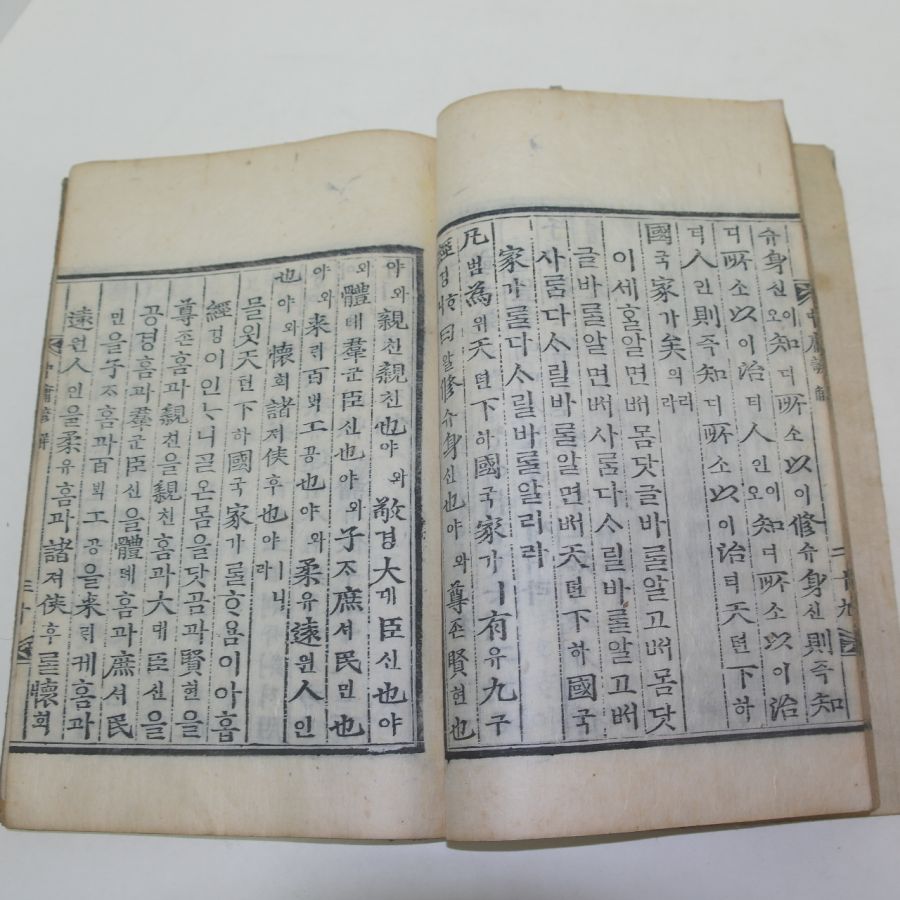 中庸諺 二十九
슈身신이오知디所소以이修슈身신則즉知
디所소以이治티人인이오知디所소以이治
티人인則즉知디所소以이治티天텬下하
國국家가矣의리라
이세흘알면ᄡᅥ몸닷글바ᄅᆞᆯ알고ᄡᅥ몸닷
글바ᄅᆞᆯ알면ᄡᅥ사ᄅᆞᆷ다ᄉᆞ릴바ᄅᆞᆯ알고ᄡᅥ
사ᄅᆞᆷ다ᄉᆞ릴바ᄅᆞᆯ알면ᄡᅥ天텬下하國국
家가ᄅᆞᆯ다ᄉᆞ릴바ᄅᆞᆯ알리라
凡범為위天텬下하國국家가ㅣ有유九구
經경ᄒᆞ니曰왈修슈身신也야와尊존賢현也
야와親친親친也야와敬경大대臣신也야
와體톄羣군臣신也야와子ᄌᆞ庶셔民민也
야와来ᄅᆡ百ᄇᆡᆨ工공也야와柔유遠원人인
也야와懷회諸져侯후也야ㅣ니라
믈읫天텬下하國국家가ᄅᆞᆯᄒᆞ욤이아홉
經경이인ᄂᆞ니ᄀᆞᆯ온몸을닷곰과賢현을
尊존홈과親친을親친홈과大대臣신을
공경홈과羣군臣신을體톄홈과庶셔民
민을子ᄌᆞ홈과百ᄇᆡᆨ工공을来ᄅᆡ케홈과
遠원人인을柔유홈과諸져侯후ᄅᆞᆯ懷회
中庸諺解 三十